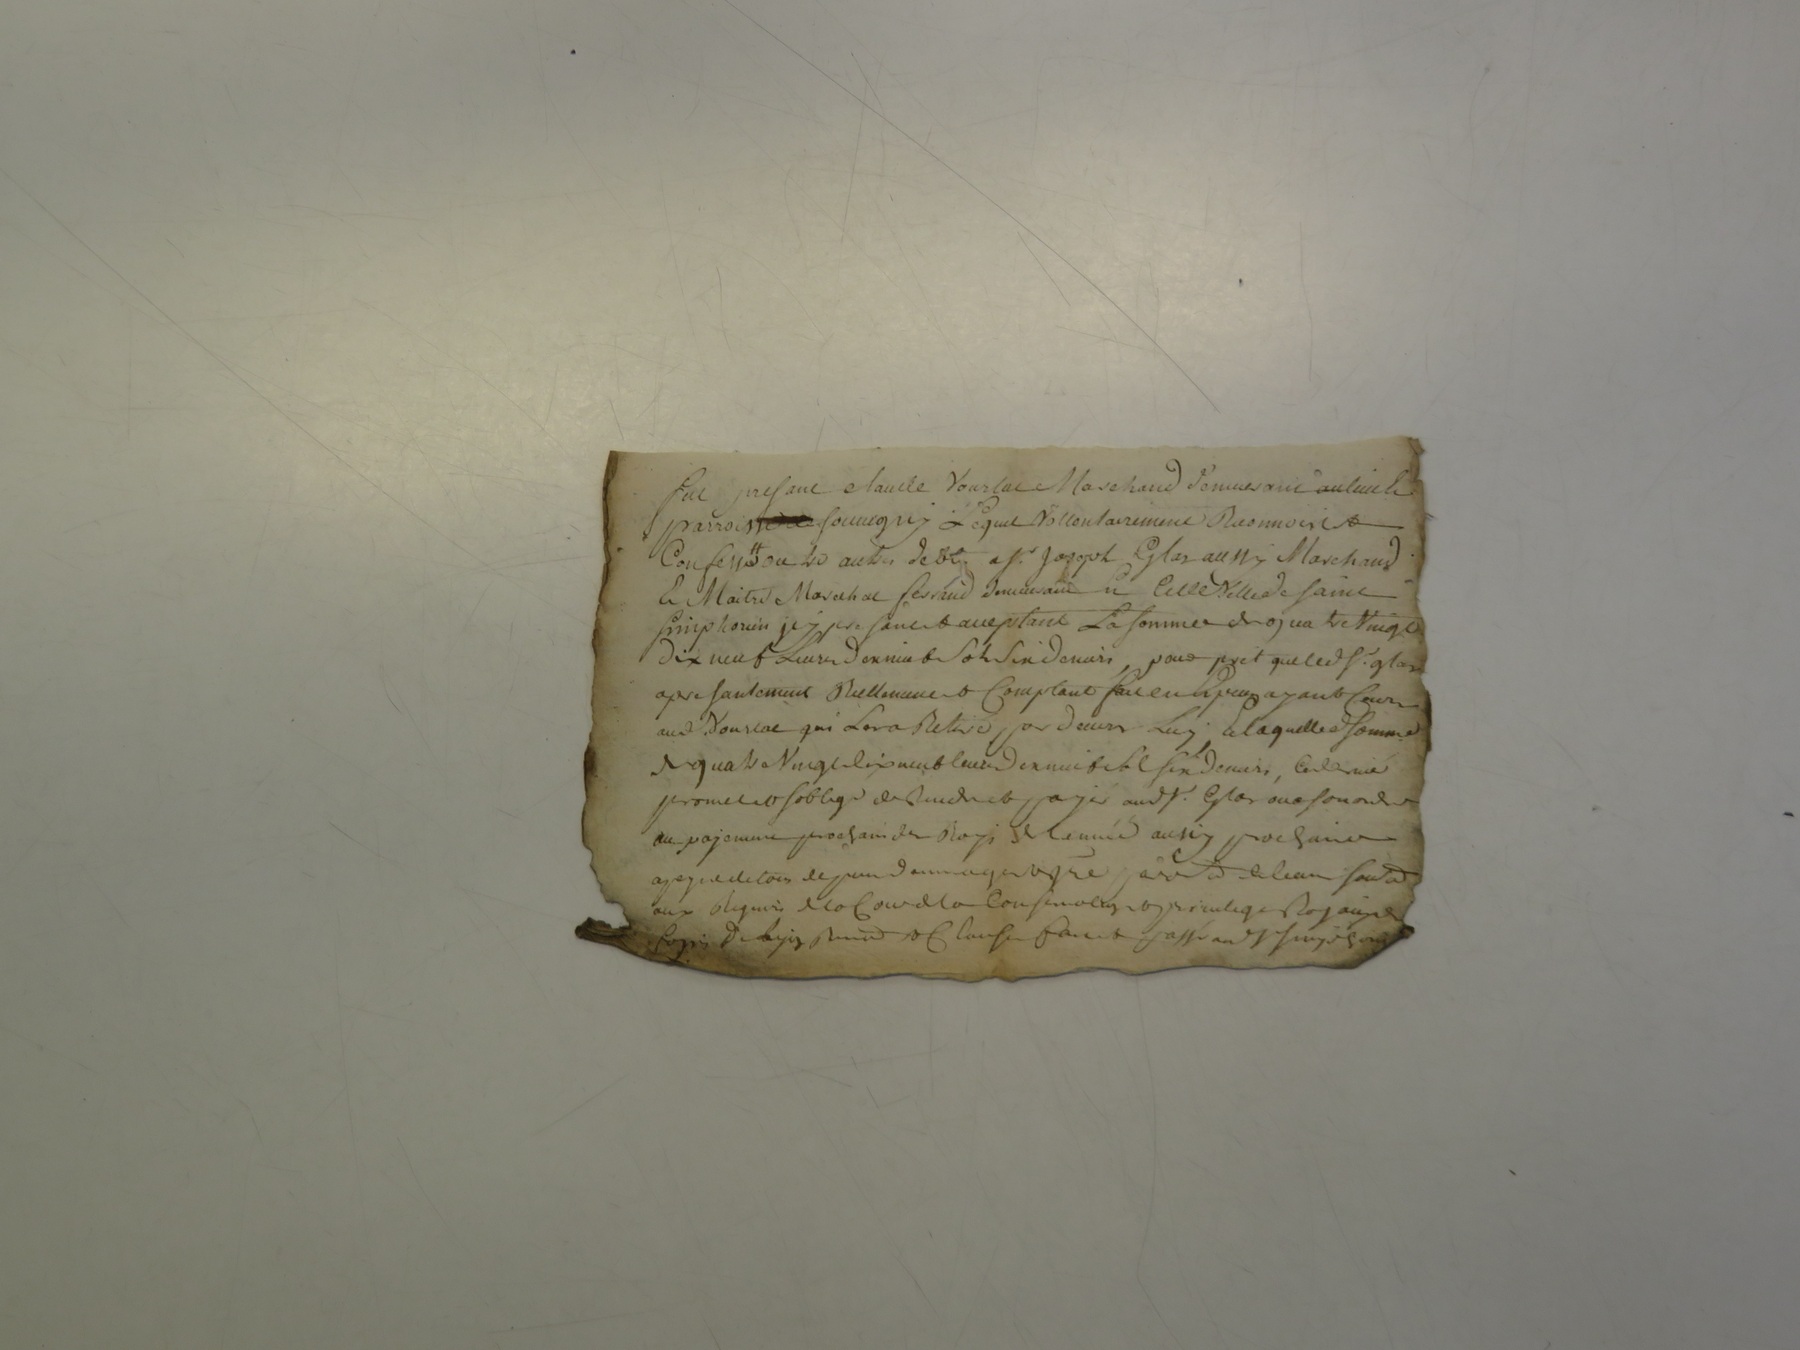 fut presant claude Vourlat Marchand demeurant au lieu de
parroisse de fourregny Lequel Vollontairement Reconnoist &
Confesse outre autres debtes a sr. Joseph Glas aussy Marchand
& Maitre Marechal ferrand demeurant en Cette Ville de Saint
Simphorien jcy presant & aceptant La somme de quatre Vingt
dix neuf Livres dix neuf sols six deniers, pour prêt que led. sr. glas
a presantement Réellement & Comptant fait en espèces ayant Cours
aud. Vourlat qui Lon a Retiré par devers Luy, de laquelle somme
de quatre Vingt dix neuf livres dix neuf sols six deniers, led.
promet & soblige de Rendre & payer aud. sr. Glas ou a son ordre
au payement prochain des Roys de Lannée aussy prochaine
a peyne de tous depens dommages
aux Rigueurs de la Cour de la Conservation & privileges Royaux de
& Clauses fait & passé aud. St simphorien